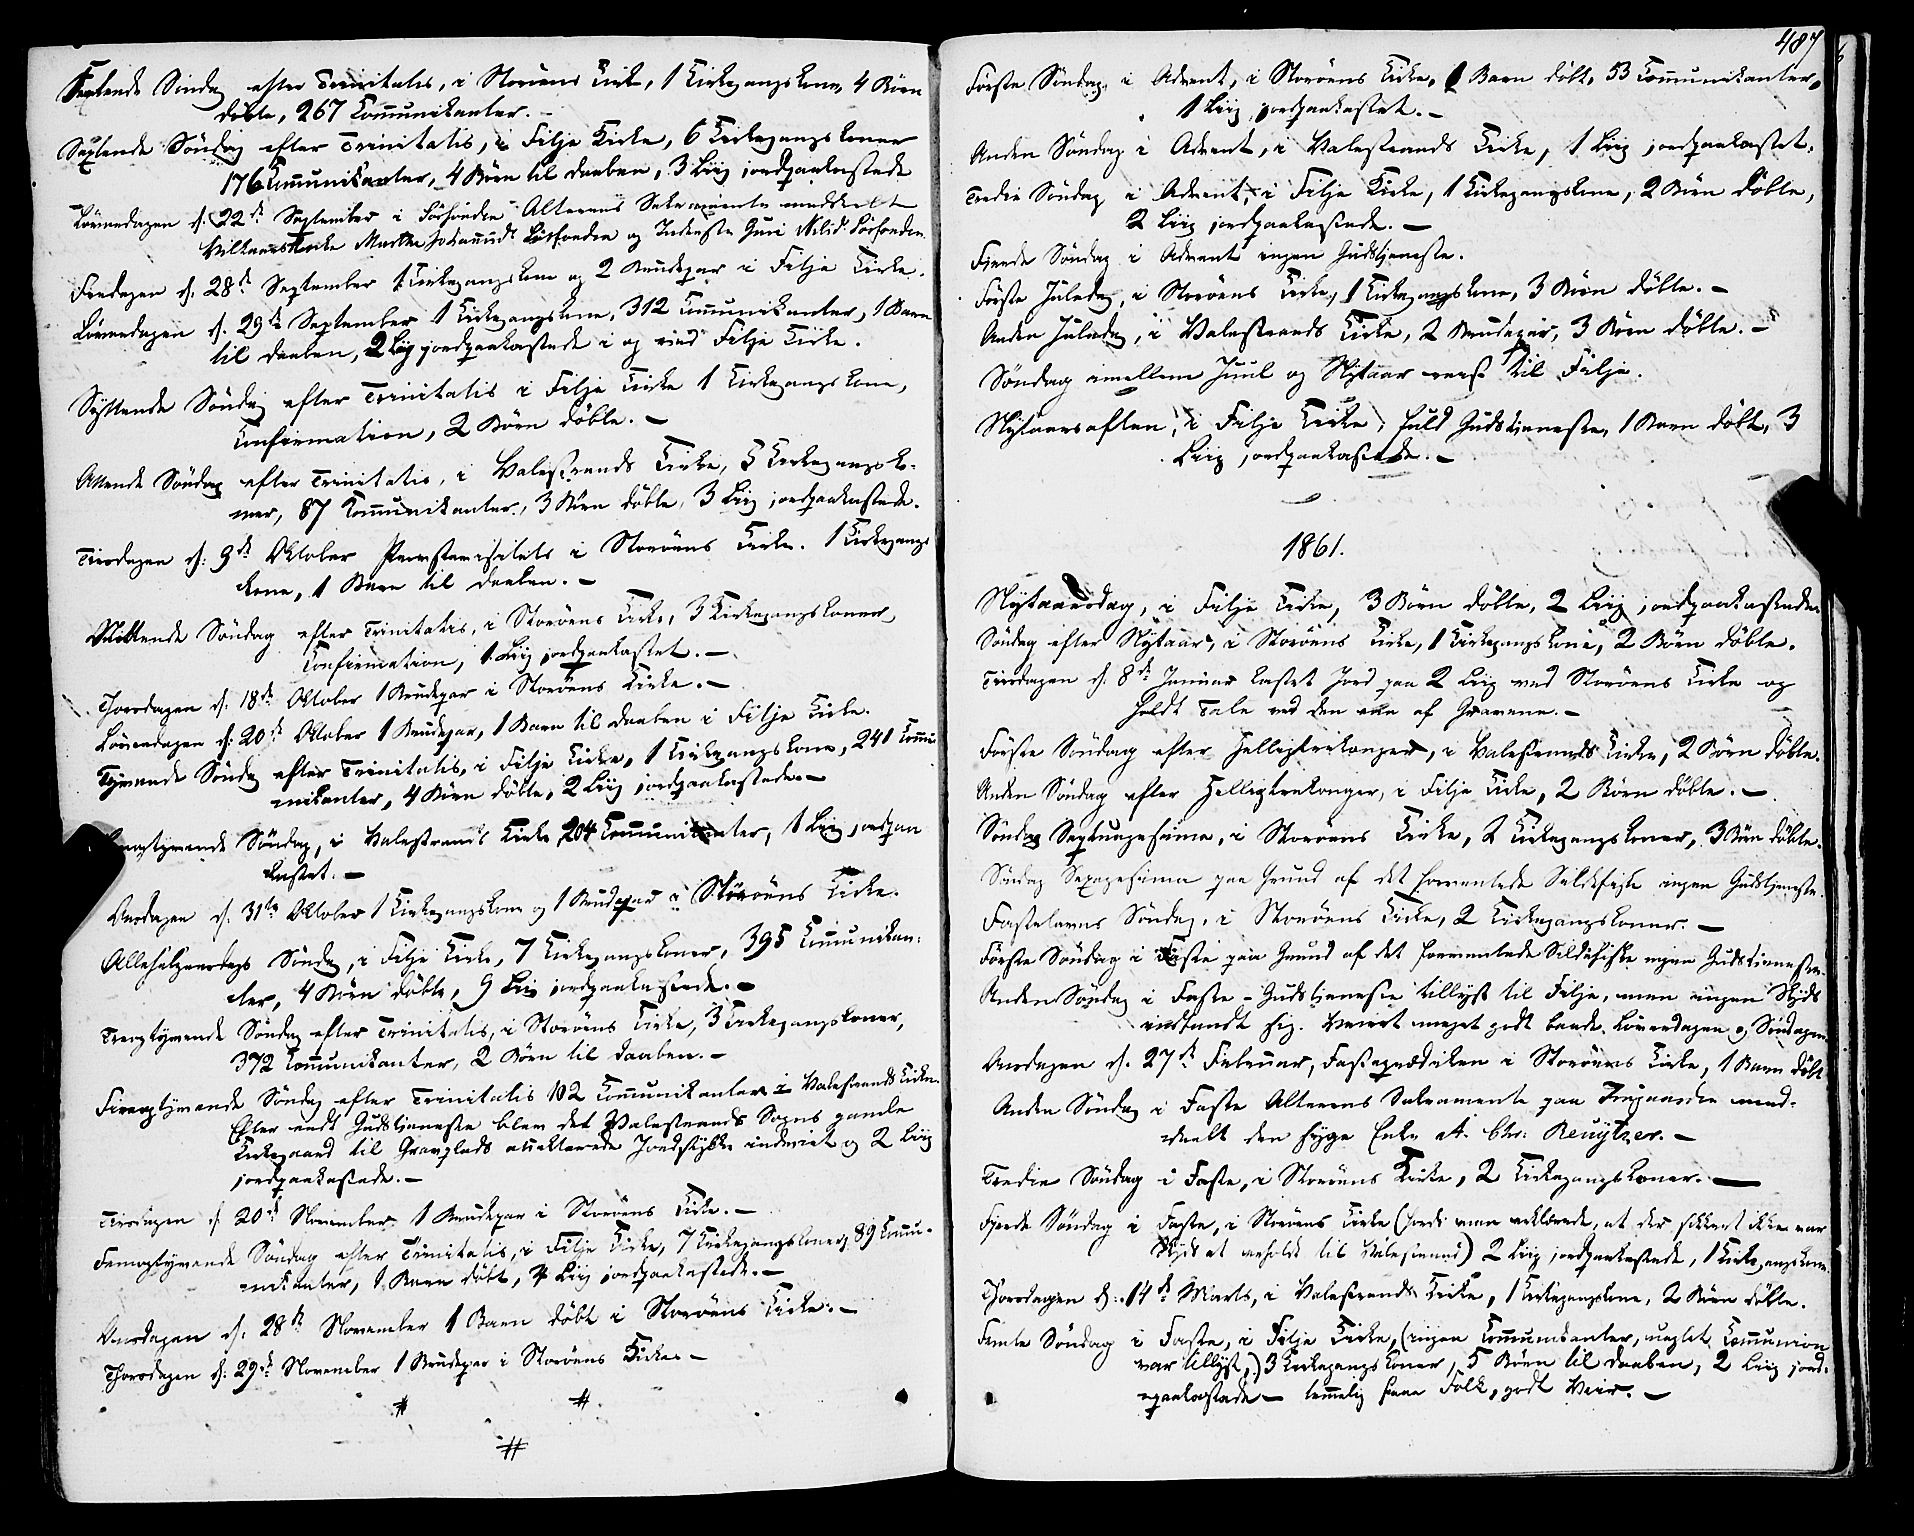 Femtende Søndag efter Trinitatis, i Storøens Kirke, 1 Kirkegangskone, 4 Børn
døbte, 267 Communikanter.
Sextende Søndag efter Trinitatis, i Fitje Kirke, 6 Kirkegangskoner
176 Communikanter, 4 Børn til Daaben, 3 Liig jordpaakastede
Løverdagen d. 22de September i Alterens Sakramente meddeelt
og Guri
Fredagen d. 28de September 1 Kirkegangskone og 2 Brudepar i Fitje Kirke.
Løverdagen d. 29de September 1 Kirkegangskone, 312 Communikanter, 1 Barn
til Daaben, 2 Liig jordpaakastede i og ved Fitje Kirke.
Syttende Søndag efter Trinitatis i Fitje Kirke 1 Kirkegangskone,
Confirmation, 2 Børn døbte. —
Attende Søndag efter Trinitatis, i Valestrands Kirke, 5 Kirkegangsko-
ner, 87 Communikanter, 3 Børn døbte, 3 Liig jordpaakastede.
Tirsdagen d. 9de Oktober i Storøens Kirke. 1 Kirkegangs
kone, 1 Barn til Daaben. —
Nittende Søndag efter Trinitatis, i Storøens Kirke, 3 Kirkegangskoner,
Confirmation, 1 Liig jordpaakastet. —
Thorsdagen d. 18de Oktober 1 Brudepar i Storøens Kirke. —
Løverdagen d. 20de Oktober 1 Brudepar, 1 Barn til Daaben i Fitje Kirke.
Tyvende Søndag efter Trinitatis, i Fitje Kirke, 1 Kirkegangskone, 241 Commu
nikanter, 4 Børn døbte, 2 Liig jordpaakastede. —
Søndag, i Valestrands Kirke 204 Communikanter, 1 Liig jordpaa
kastet. —
Onsdagen d. 31te Oktober 1 Kirkegangskone og 1 Brudepar i Storøens Kirke.
Allehelgensdags Søndag, i Fitje Kirke, 7 Kirkegangskoner, 395 Communikan-
ter, 4 Børn døbte, 9 Liig jordpaakastede. —
Treogtyvende Søndag efter Trinitatis, i Storøens Kirke, 3 Kirkegangskoner,
372 Communikanter, 2 Børn til Daaben. —
Fireogtyvende Søndag efter Trinitatis 102 Communikanter i Valestrands Kirke.
Efter endt Gudstjeneste blev det Valestrands Sogns gamle
Kirkegaard til Gravplads Jordstykke indviet og 2 Liig
jordpaakastede. —
Tirsdagen d. 20de November 1 Brudepar i Storøens Kirke. —
Femogtyvende Søndag efter Trinitatis, i Fitje Kirke, 7 Kirkegangskoner, 89 Commu-
nikanter, 1 Barn døbt, Liig jordpaakastede. —
Onsdagen d. 28de November 1 Barn døbt i Storøens Kirke. —
Thorsdagen d. 29de November 1 Brudepar i Storøens Kirke. —
# #
#
487
Første Søndag i Advent, i Storøens Kirke, 1 Barn døbt, 53 Communikanter,
1 Liig jordpaakastet. —
Anden Søndag i Advent, i Valestrands Kirke, 1 Liig jordpaakastet,
Tredie Søndag i Advent, i Fitje Kirke, 1 Kirkegangskone, 2 Børn døbte,
2 Liig jordpaakastede. —
Fjerde Søndag i Advent ingen Gudstjeneste.
Første Juledag, i Storøens Kirke, 1 Kirkegangskone, 3 Børn døbte. —
Anden Juledag, i Valestrands Kirke, 2 Brudepar, 3 Børn døbte. —
Søndag imellem Juul og Nytaar reist til Fitje.
Nytaarsaften, i Fitje Kirke, fuld Gudstjeneste, 1 Barn døbt, 3
Liig jordpaakastede. —
1861.
Nytaarsdag, i Fitje Kirke, 3 Børn døbte, 2 Liig jordpaakastede.
Søndag efter Nytaar, i Storøens Kirke, 1 Kirkegangskone, 2 Børn døbte.
Tirsdagen d. 8de Januar kastet Jord paa 2 Liig ved Storøens Kirke og
holdt Tale ved den ene af Gravene. —
Første Søndag efter Helligtrekonger, i Valestrands Kirke, 2 Børn døbte.
Anden Søndag efter Helligtrekonger, i Fitje Kirke, 2 Børn døbte. —
Søndag Septuagesima, i Storøens Kirke, 2 Kirkegangskoner, 3 Børn døbte.
Søndag Sexagesima paa Grund af det forventede Sildefiske ingen Gudstjeneste.
Fastelavns Søndag, i Storøens Kirke, 2 Kirkegangskoner. —
Første Søndag i Faste paa Grund af det forventede Sildefiske ingen Gudstjeneste.
Anden Søndag i Faste – Gudstjeneste tillyst til Fitje, men ingen Skyds
indfandt sig. Veiret meget godt baade Løverdagen og Søndagen
Onsdagen d. 27de Februar, Fasteprædiken i Storøens Kirke, 1 Barn døbt
Anden Søndag i Faste Alterens Sakramente paa med-
deelt den syge Enke A. Chr. —
Tredie Søndag i Faste, i Storøens Kirke, 2 Kirkegangskoner. —
Fjerde Søndag i Faste, i Storøens Kirke (fordi man erklærede, at der sikkert ikke var
Skyds at erholde til Valestrand) 2 Liig jordpaakastede, 1 Kirkegangskone.
Thorsdagen d. 14de Marts, i Valestrands Kirke, 1 Kirkegangskone, 2 Børn døbte.
Femte Søndag i Faste, i Fitje Kirke, (ingen Communikanter, uagtet Communion
var tillyst,) 3 Kirkegangskoner, 5 Børn til Daaben, 2 Liig jord-
paakastede — temmelig faae Folk, godt Veir. —